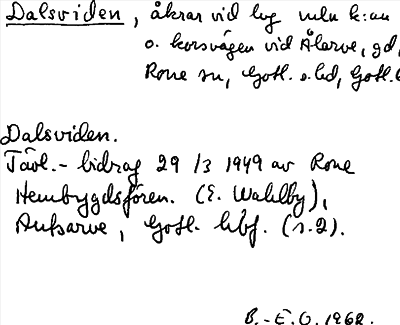 Dalsviden, åkrar vid lvg mln k:an
o. korsvägen vid Ålarve, gd,
Rone sn, Gotl. s. hd, Gotl. l
Dalsviden.
Tävl.-bidrag 29/3 1949 av Rone
Hembygdsfören. (E. Wahlby),
Aufsarve, Gotl. hbf. (s. 2).
B.-E.O. 1962.